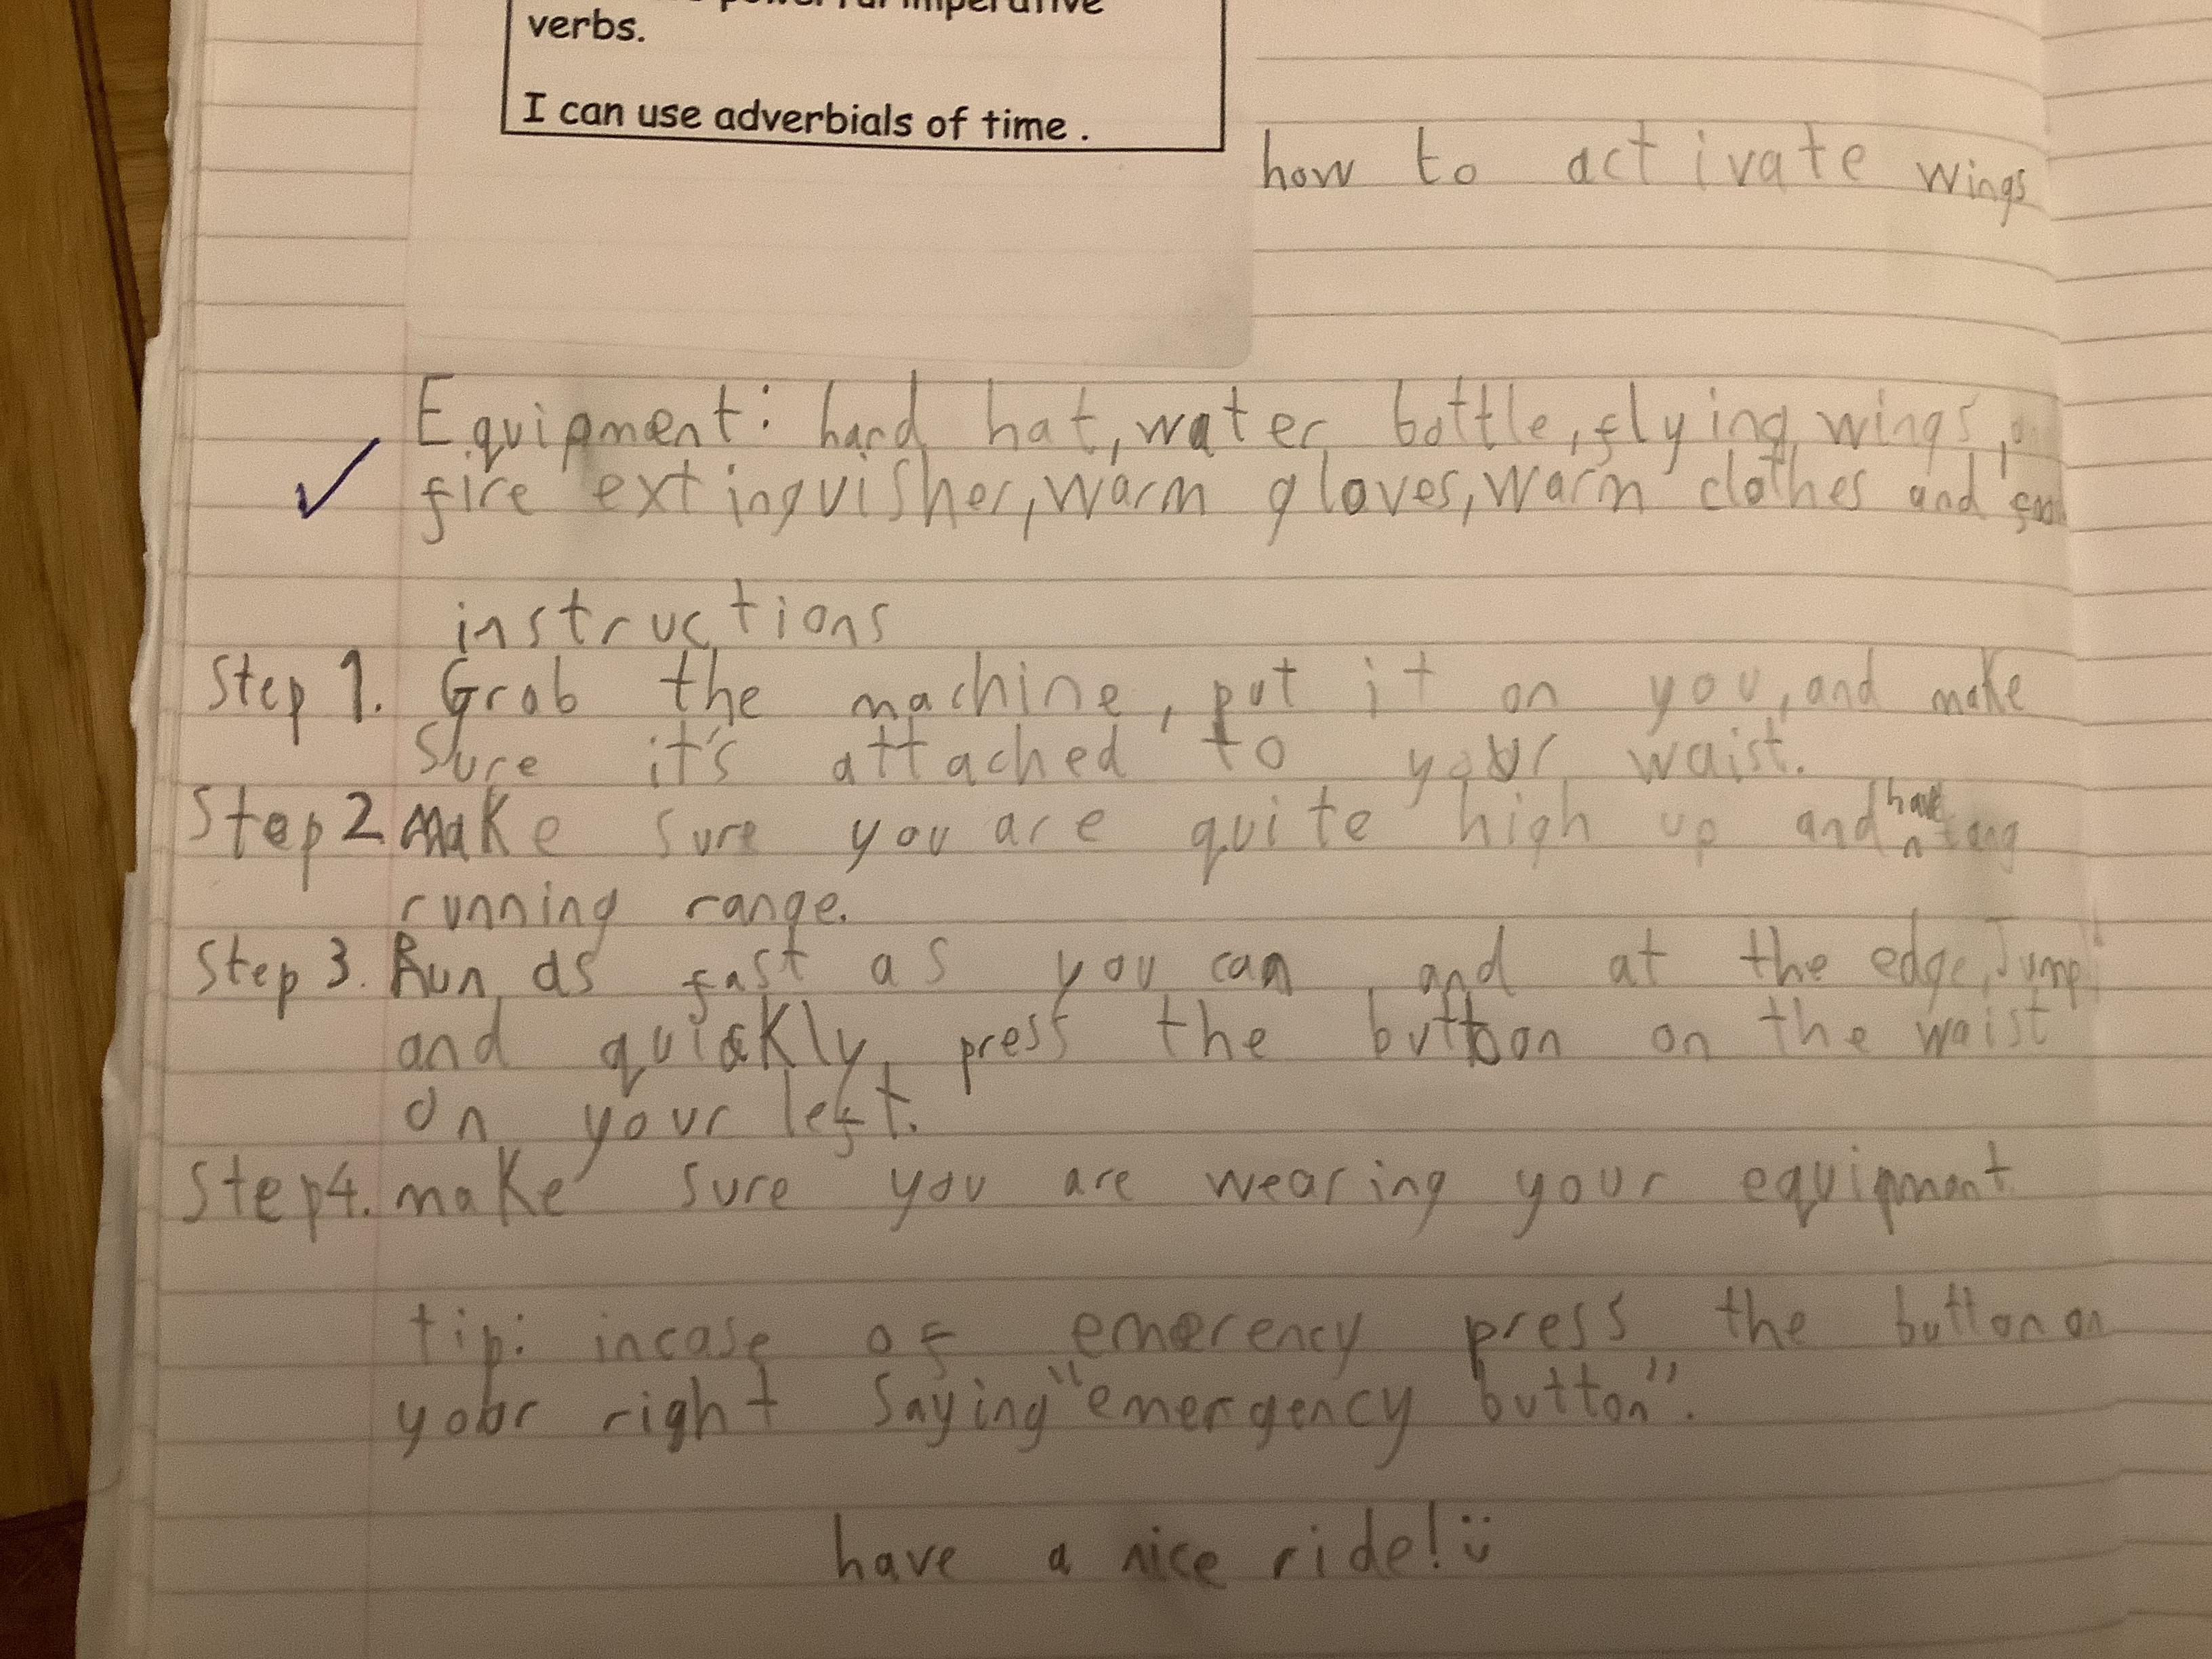 imperative
verbs.
I can use adverbials of time .
how to activate wings
Equipment: hard hat, water bottle, flying wings,
fire extinguisher, warm gloves, warm clothes and
instructions
Step 1. Grab the machine, put it on you, and make
Sure it's attached to your waist.
Step 2 Make sure you are quite high up and have
running range.
Step 3. Run as fast as you can and at the edge, Jump
and quickly press the button on the waist
on your left.
Step 4. make sure you are wearing your equipment
tip: incase of emerency press the button on
your right Saying "emergency button".
have a nice ride! :)